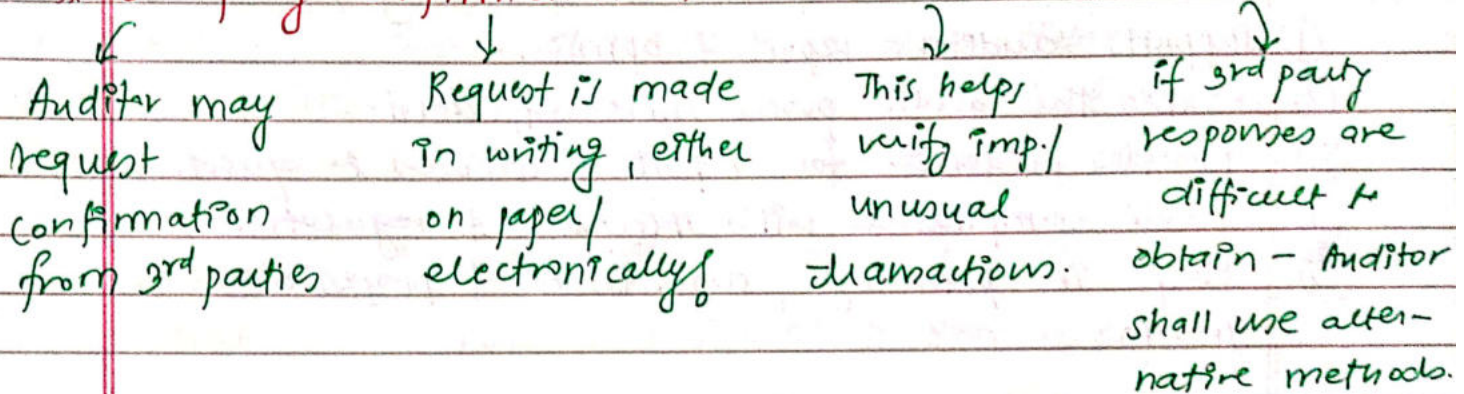 Auditor may
request
confirmation
from 3rd parties
Request is made
in writing, either
on paper/
electronically!
This helps
verify imp./
unusual
transactions.
if 3rd party
responses are
difficult to
obtain - Auditor
shall use alter-
native methods.